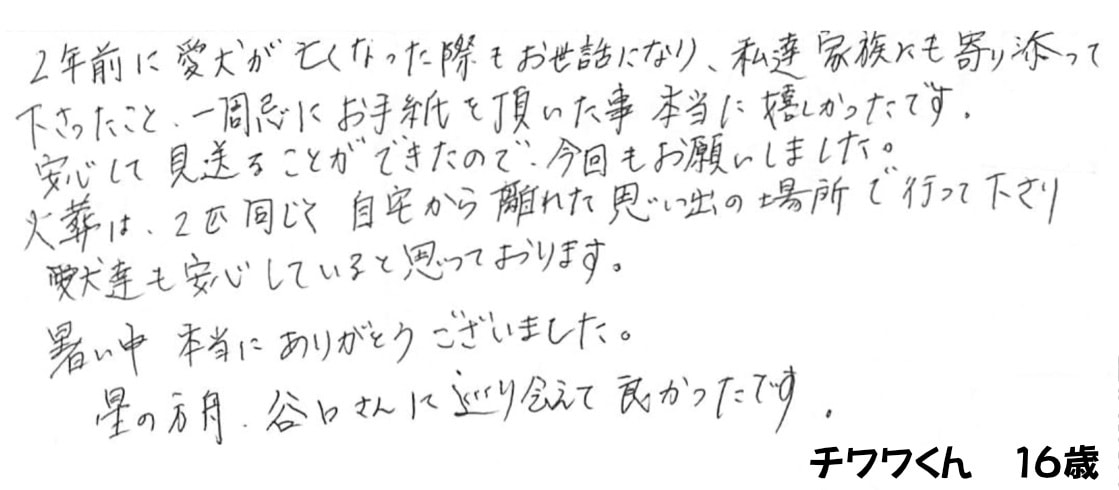 2年前に愛犬が亡くなった際もお世話になり、私達家族にも寄り添って
下さったこと、一周忌にお手紙を頂いた事本当に嬉しかったです。
安心して見送ることができたので、今回もお願いしました。
火葬は、2匹同じく自宅から離れた思い出の場所で行って下さり
愛犬達も安心していると思っております。
暑い中 本当にありがとうございました。
星の方舟、谷口さんに巡り会えて良かったです。
チワワくん 16歳